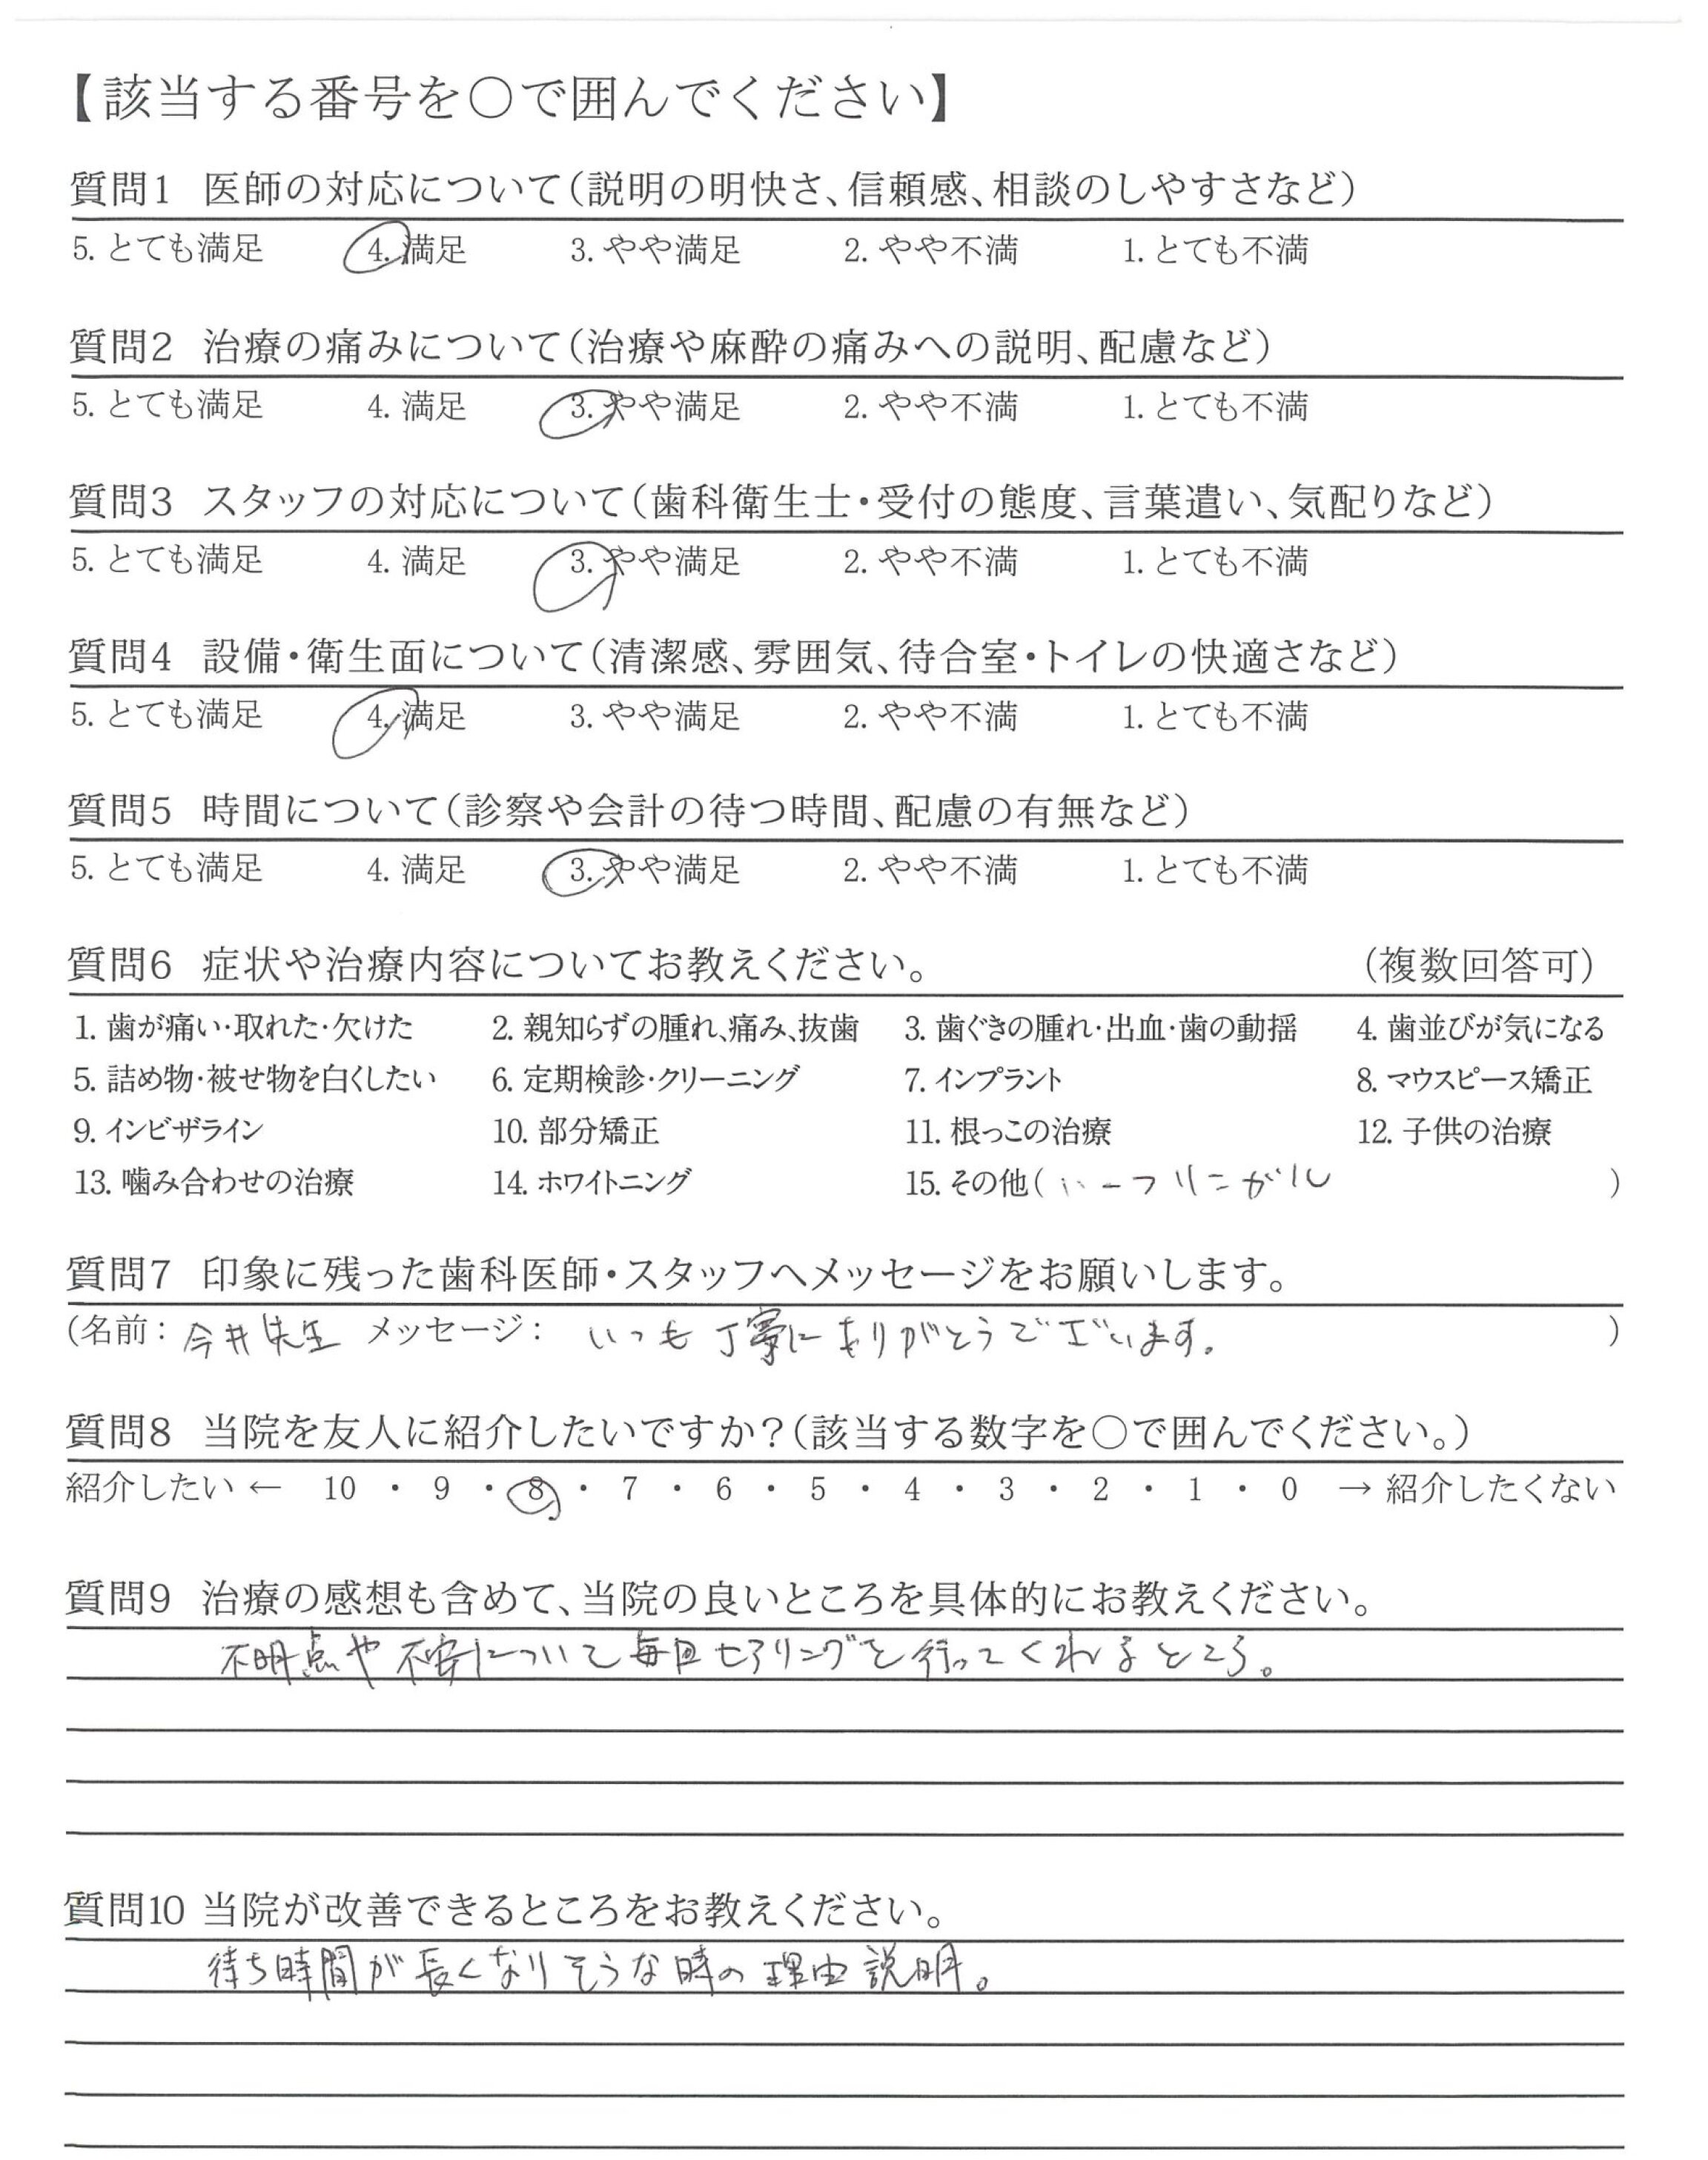 【該当する番号を○で囲んでください】
質問1 医師の対応について(説明の明快さ、信頼感、相談のしやすさなど)
5. とても満足 4. 満足 3. やや満足 2. やや不満 1. とても不満
質問2 治療の痛みについて(治療や麻酔の痛みへの説明、配慮など)
5. とても満足 4. 満足 3. やや満足 2. やや不満 1. とても不満
質問3 スタッフの対応について(歯科衛生士・受付の態度、言葉遣い、気配りなど)
5. とても満足 4. 満足 3. やや満足 2. やや不満 1. とても不満
質問4 設備・衛生面について(清潔感、雰囲気、待合室・トイレの快適さなど)
5. とても満足 4. 満足 3. やや満足 2. やや不満 1. とても不満
質問5 時間について(診察や会計の待つ時間、配慮の有無など)
5. とても満足 4. 満足 3. やや満足 2. やや不満 1. とても不満
質問6 症状や治療内容についてお教えください。 (複数回答可)
1. 歯が痛い・取れた・欠けた 2. 親知らずの腫れ、痛み、抜歯 3. 歯ぐきの腫れ・出血・歯の動揺 4. 歯並びが気になる
5. 詰め物・被せ物を白くしたい 6. 定期検診・クリーニング 7. インプラント 8. マウスピース矯正
9. インビザライン 10. 部分矯正 11. 根っこの治療 12. 子供の治療
13. 噛み合わせの治療 14. ホワイトニング 15. その他(ハーフリンガル)
質問7 印象に残った歯科医師・スタッフへメッセージをお願いします。
(名前:今井先生 メッセージ: いつも丁寧にありがとうございます。)
質問8 当院を友人に紹介したいですか?(該当する数字を○で囲んでください。)
紹介したい ← 10 ・ 9 ・ 8 ・ 7 ・ 6 ・ 5 ・ 4 ・ 3 ・ 2 ・ 1 ・ 0 → 紹介したくない
質問9 治療の感想も含めて、当院の良いところを具体的にお教えください。
不明点や不安について毎回ヒアリングを行ってくれるところ。
質問10 当院が改善できるところをお教えください。
待ち時間が長くなりそうな時の理由説明。